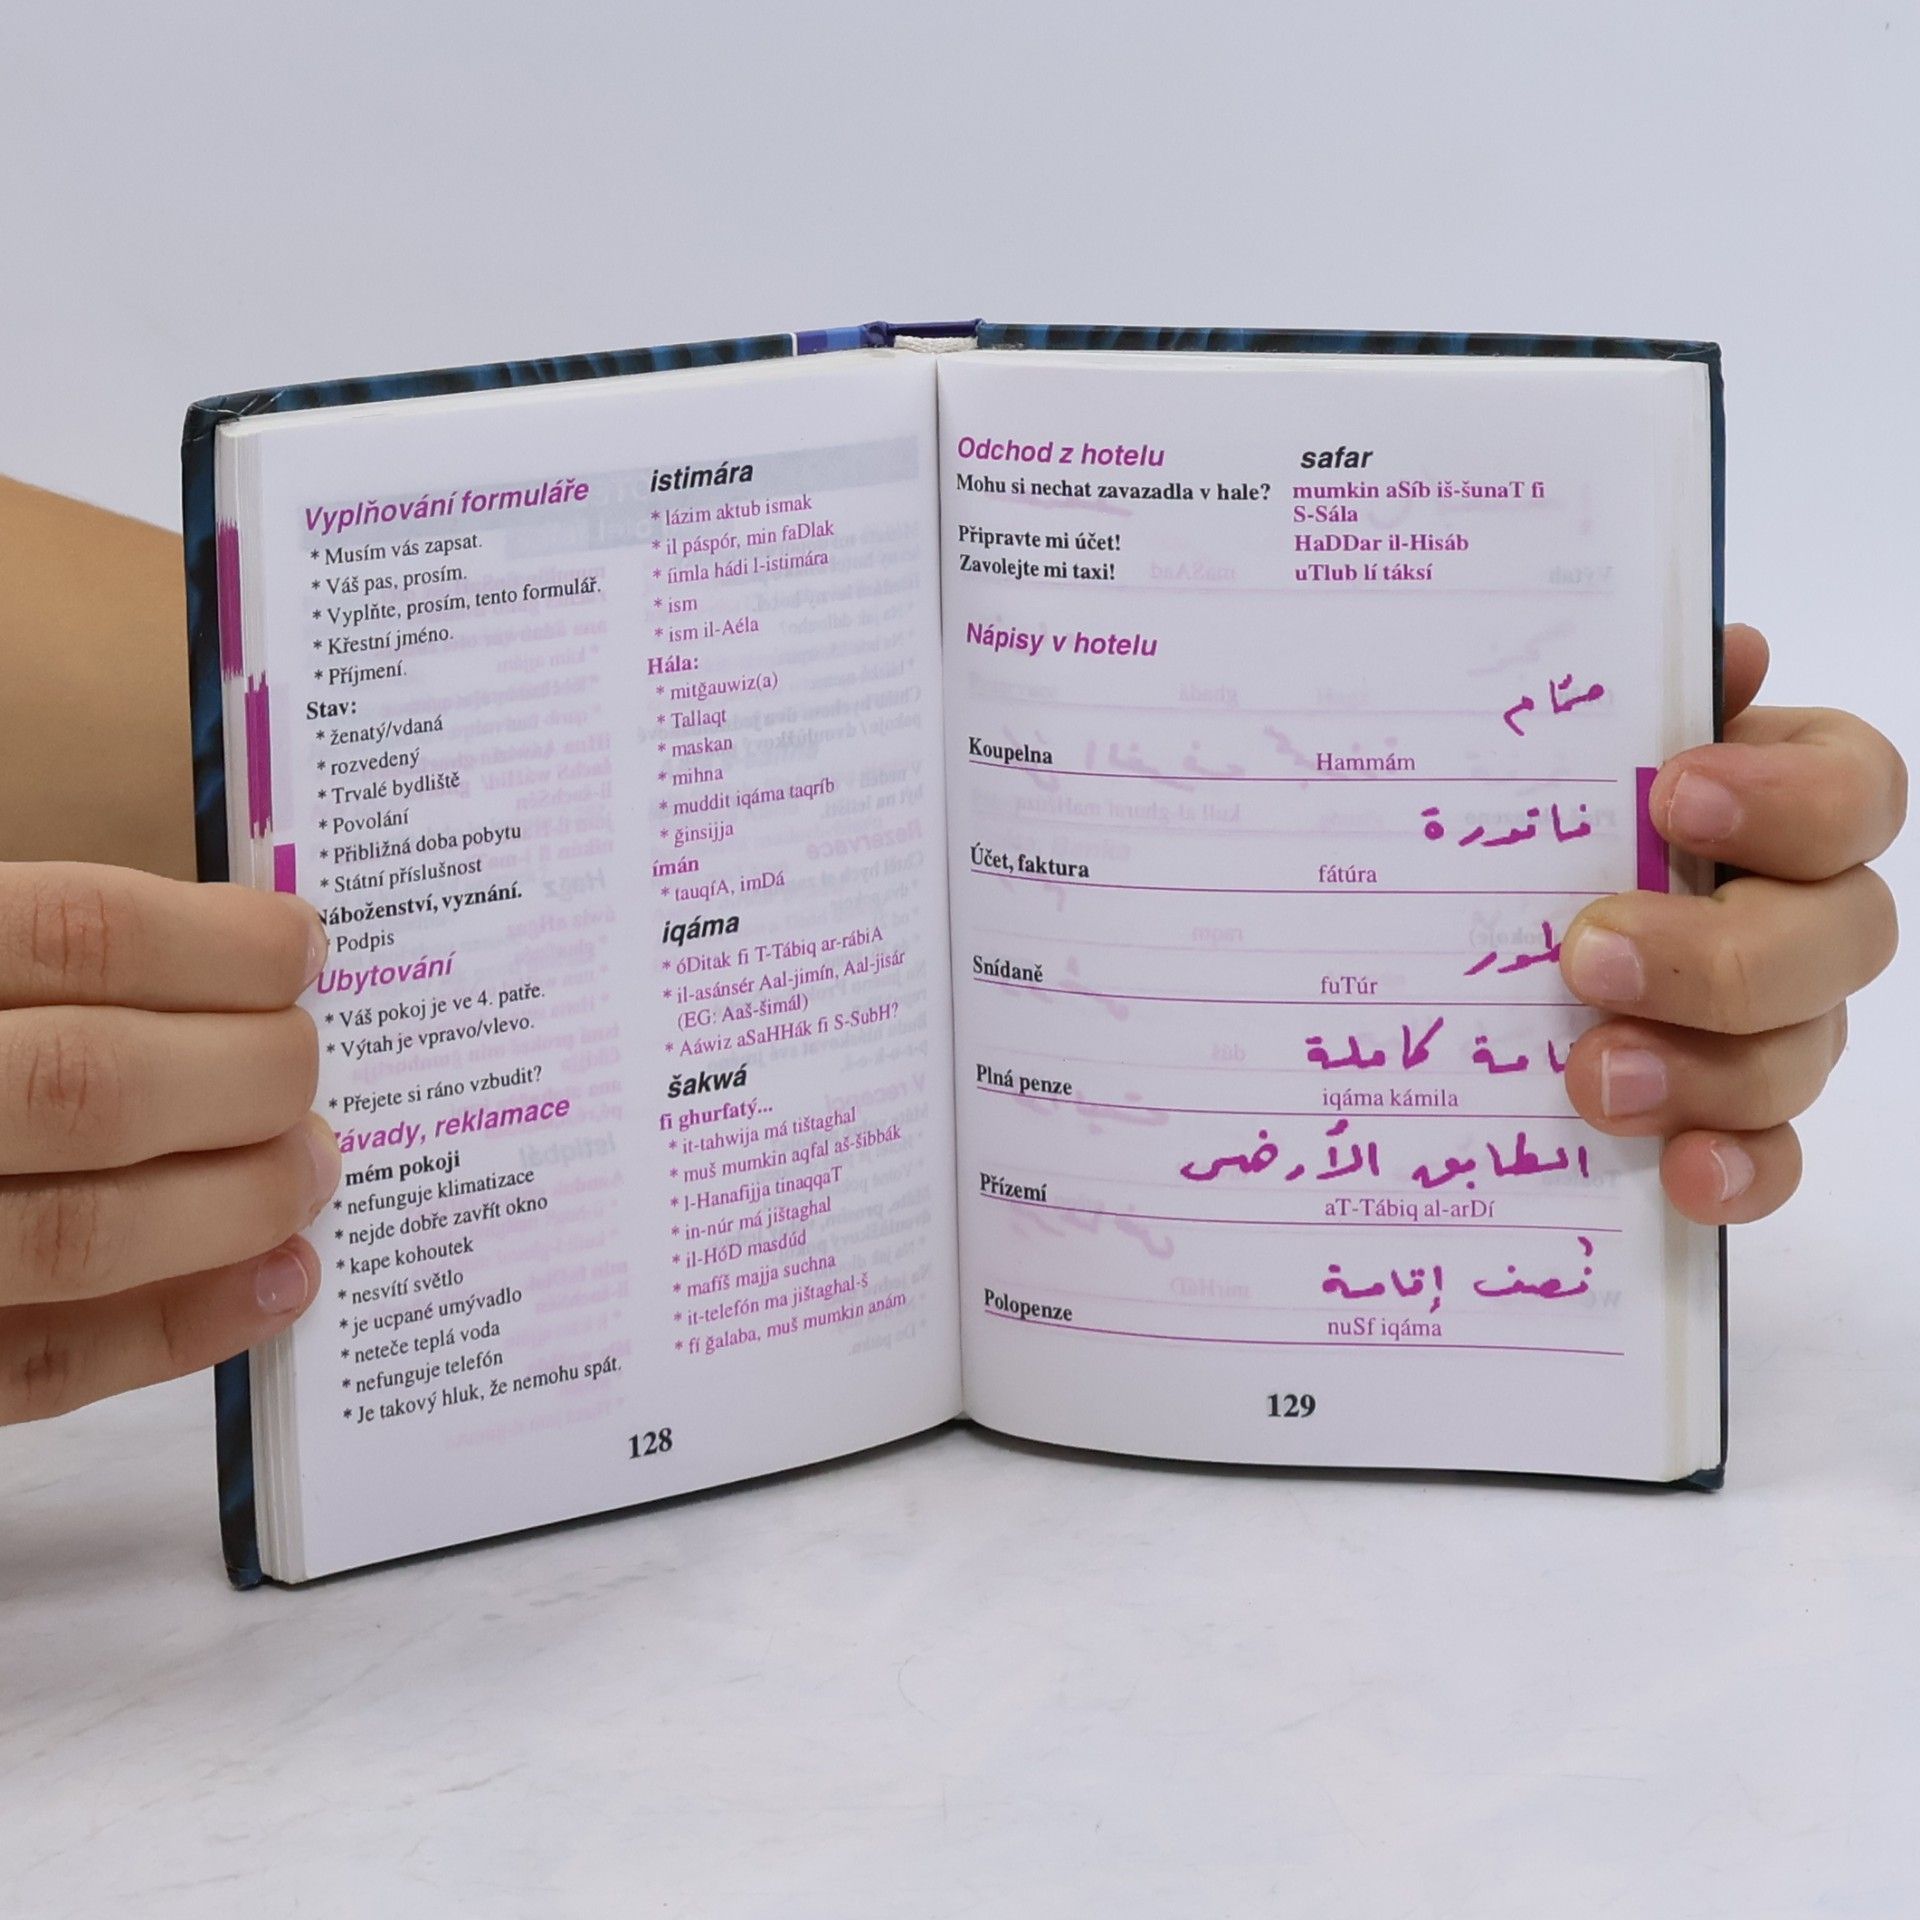 Vyplňování formuláře
* Musím vás zapsat.
* Váš pas, prosím.
* Vyplňte, prosím, tento formulář.
* Křestní jméno.
* Příjmení.
Stav:
* ženatý/vdaná
* rozvedený
* Trvalé bydliště
* Povolání
* Přibližná doba pobytu
* Státní příslušnost
Náboženství, vyznání.
* Podpis
Ubytování
* Váš pokoj je ve 4. patře.
* Výtah je vpravo/vlevo.
* Přejete si ráno vzbudit?
Závady, reklamace
mém pokoji
* nefunguje klimatizace
* nejde dobře zavřít okno
* kape kohoutek
* nesvítí světlo
* je ucpané umývadlo
* neteče teplá voda
* nefunguje telefón
* Je takový hluk, že nemohu spát.
istimára
* lázim aktub ismak
* il páspór, min faDlak
* íimla hádi l-istimára
* ism
* ism il-Aéla
Hála:
* mitğauwiz(a)
* Tallaqt
* maskan
* mihna
* muddit iqáma taqríb
* ğinsijja
ímán
* tauqíA, imDá
iqáma
* óDitak fi T-Tábiq ar-rábiA
* il-asánsér Aal-jimín, Aal-jisár
(EG: Aaš-šimál)
* Aáwiz aSaHHák fi S-SubH?
šakwá
fi ghurfatý...
* it-tahwija má tištaghal
* muš mumkin aqfal aš-šibbák
* l-Hanafijja tinaqqaT
* in-núr má jištaghal
* il-HóD masdúd
* mafíš majja suchna
* it-telefón ma jištaghal-š
* fí ğalaba, muš mumkin anám
128
Odchod z hotelu safar
Mohu si nechat zavazadla v hale? mumkin aSíb iš-šunaT fi
S-Sála
Připravte mi účet! HaDDar il-Hisáb
Zavolejte mi taxi! uTlub lí táksí
Nápisy v hotelu
حمّام
Koupelna Hammám
فاتورة
Účet, faktura fátúra
Snídaně fuTúr
كاملة
Plná penze iqáma kámila
الطابق الأرضى
Přízemí aT-Tábiq al-arDí
نُصف إقامة
Polopenze nuSf iqáma
129